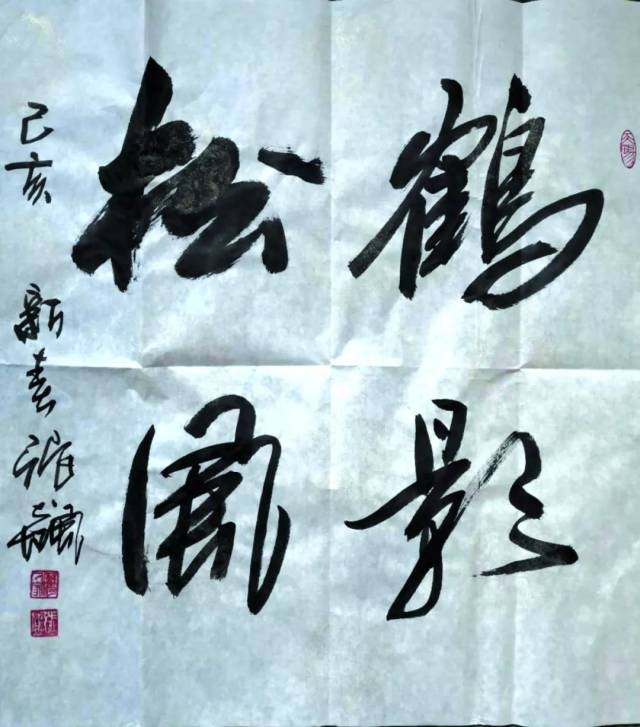 鶴影
松風
己亥 新春 張